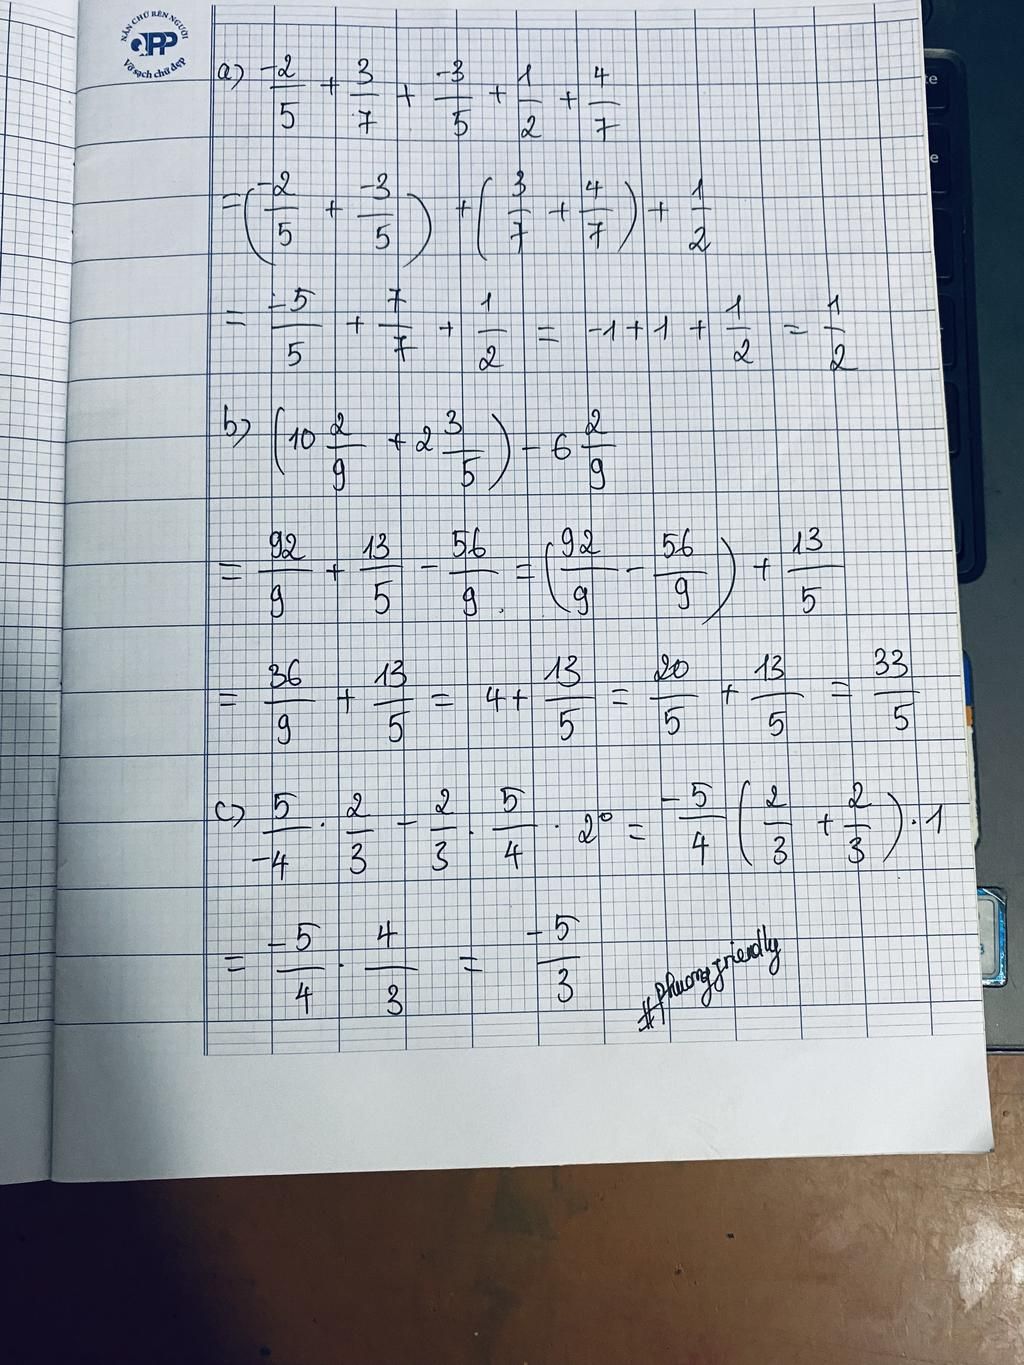 NẮN CHỮ RÈN NGƯỜI
PP
Vở sạch chữ đẹp
a) -2/5 + 3/7 + -3/5 + 1/2 + 4/7
= (-2/5 + -3/5) + (3/7 + 4/7) + 1/2
= -5/5 + 7/7 + 1/2 = -1 + 1 + 1/2 = 1/2
b) (10 2/9 + 2 3/5) - 6 2/9
= 92/9 + 13/5 - 56/9 = (92/9 - 56/9) + 13/5
= 36/9 + 13/5 = 4 + 13/5 = 20/5 + 13/5 = 33/5
c) 5/-4 . 2/3 - 2/3 . 5/4 . 2⁰ = -5/4 (2/3 + 2/3) . 1
= -5/4 . 4/3 = -5/3
#phuongfriendly